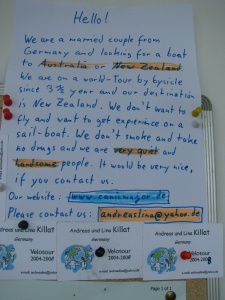 Hello!
We are a married couple from
Germany and looking for a boat
to Australia or New Zealand
We are on a world-Tour by bycicle
since 3½ year and our destination
is New Zealand. We don't want to
fly and want to get experience on a
sail-boat. We don't smoke and take
no drugs and we are very quiet and
handsome people. It would be very nice,
if you contact us.
Our website: www.canismajor.de
Please contact us: andreaslina@yahoo.de
Andreas und Lina Killat
Germany
Velotour
2004-2008
Andreas und Lina Killat
Germany
Velotour
2004-2008
Andreas und Lina Killat
Germany
Velotour
2004-2008
Page 1 of 1